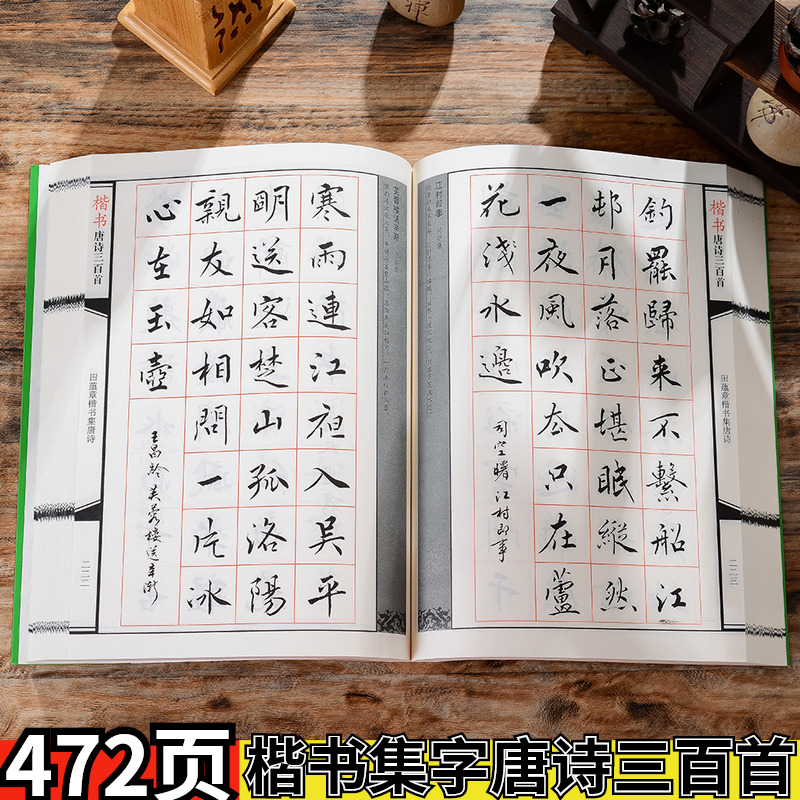 禪
楷书唐诗三百首
田蕴章楷书集唐诗
二二三
釣罷歸來不繫船江
邨月落正堪眠縱然
一夜風吹去只在蘆
花淺水邊
司空曙 江村即事
江村即事 司空曙
芙蓉楼送辛渐
寒雨連江夜入吳平
明送客楚山孤洛陽
親友如相問一片冰
心在玉壺
王昌齡 芙蓉樓送辛漸
楷书唐诗三百首
田蕴章楷书集唐诗
二二二
472页 楷书集字唐诗三百首